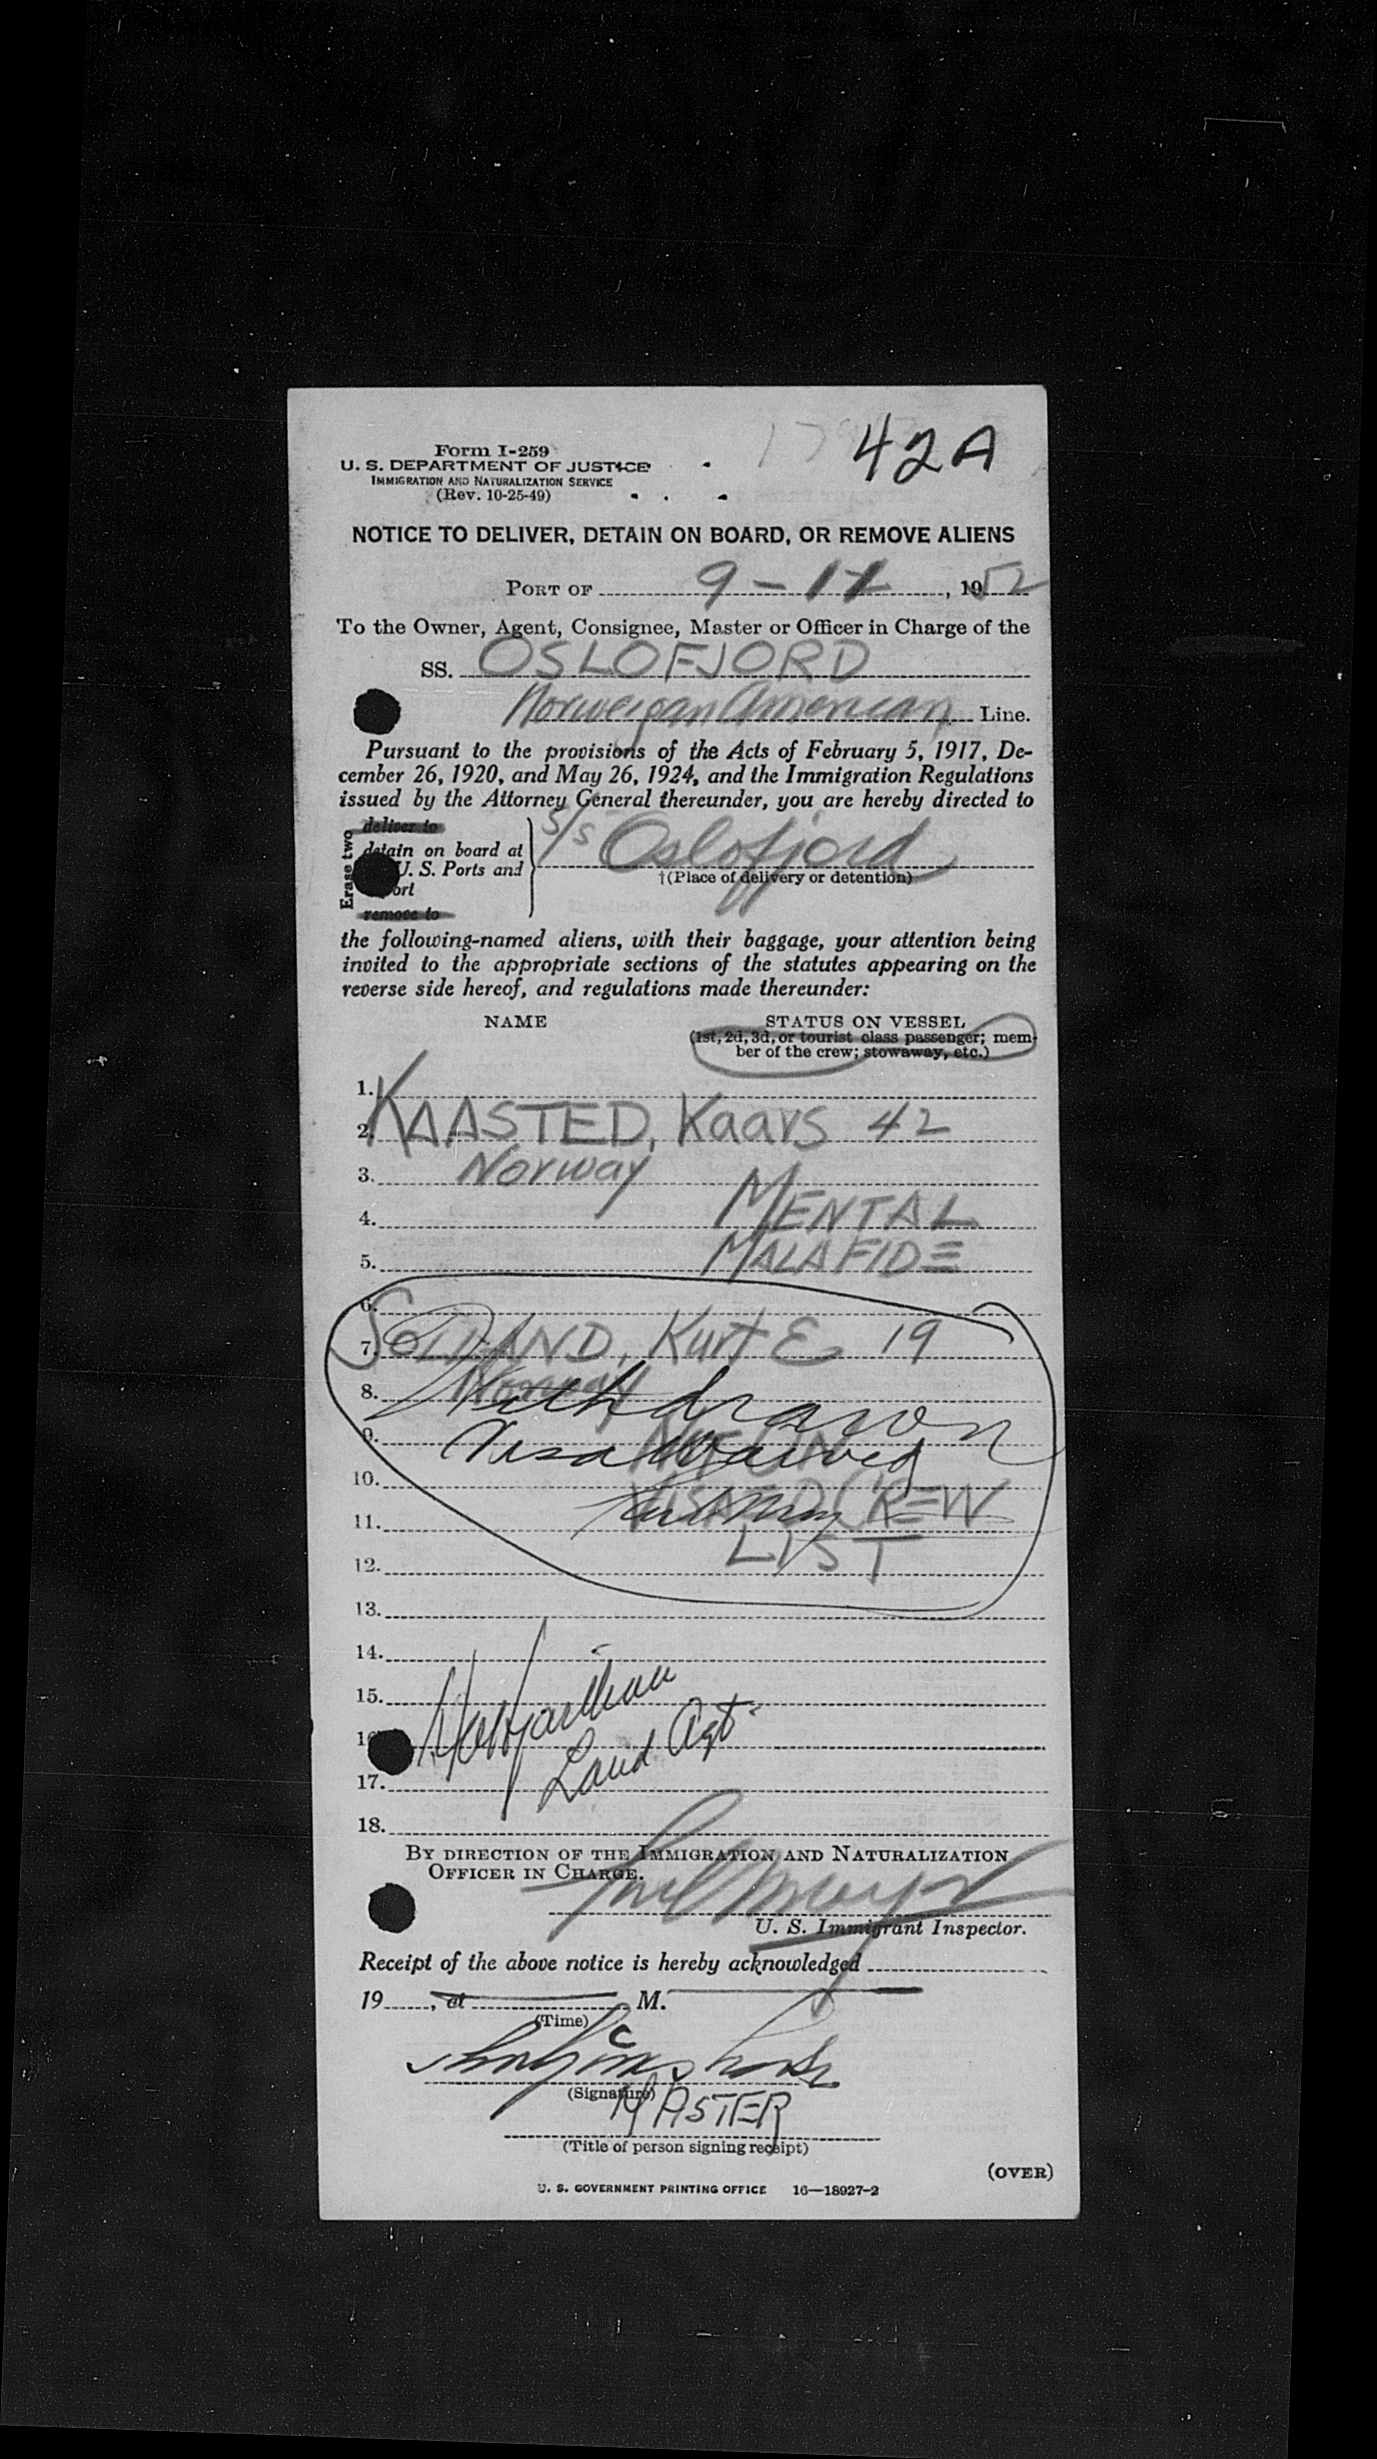 42A
Form I-259
U. S. DEPARTMENT OF JUSTICE
IMMIGRATION AND NATURALIZATION SERVICE
(Rev. 10-25-49)
NOTICE TO DELIVER, DETAIN ON BOARD, OR REMOVE ALIENS
PORT OF 9 - 1 , 1952
To the Owner, Agent, Consignee, Master or Officer in Charge of the
SS. OSLOFJORD
Norwegian American Line.
Pursuant to the provisions of the Acts of February 5, 1917, De-
cember 26, 1920, and May 26, 1924, and the Immigration Regulations
issued by the Attorney General thereunder, you are hereby directed to
Erase two
deliver to
detain on board at
U. S. Ports and
ort
remove to
S/S Oslofjord
†(Place of delivery or detention)
the following-named aliens, with their baggage, your attention being
invited to the appropriate sections of the statutes appearing on the
reverse side hereof, and regulations made thereunder:
NAME STATUS ON VESSEL
(1st, 2d, 3d, or tourist class passenger; mem-
ber of the crew; stowaway, etc.)
1.
2. KAASTED, Kaars 42
3. Norway
4. MENTAL
5. MALAFIDE
6.
7. Kurt E 19
8. Norway Withdrawn
9. Visa Waived NOT ON
10.
11. VISAED CREW
12. LIST
13.
14.
15.
16
17. Land. Agt.
18.
BY DIRECTION OF THE IMMIGRATION AND NATURALIZATION
OFFICER IN CHARGE.
U. S. Immigrant Inspector.
Receipt of the above notice is hereby acknowledged
19 , at M.
(Time)
(Signature)
MASTER
(Title of person signing receipt)
(OVER)
U. S. GOVERNMENT PRINTING OFFICE 16—18927-2